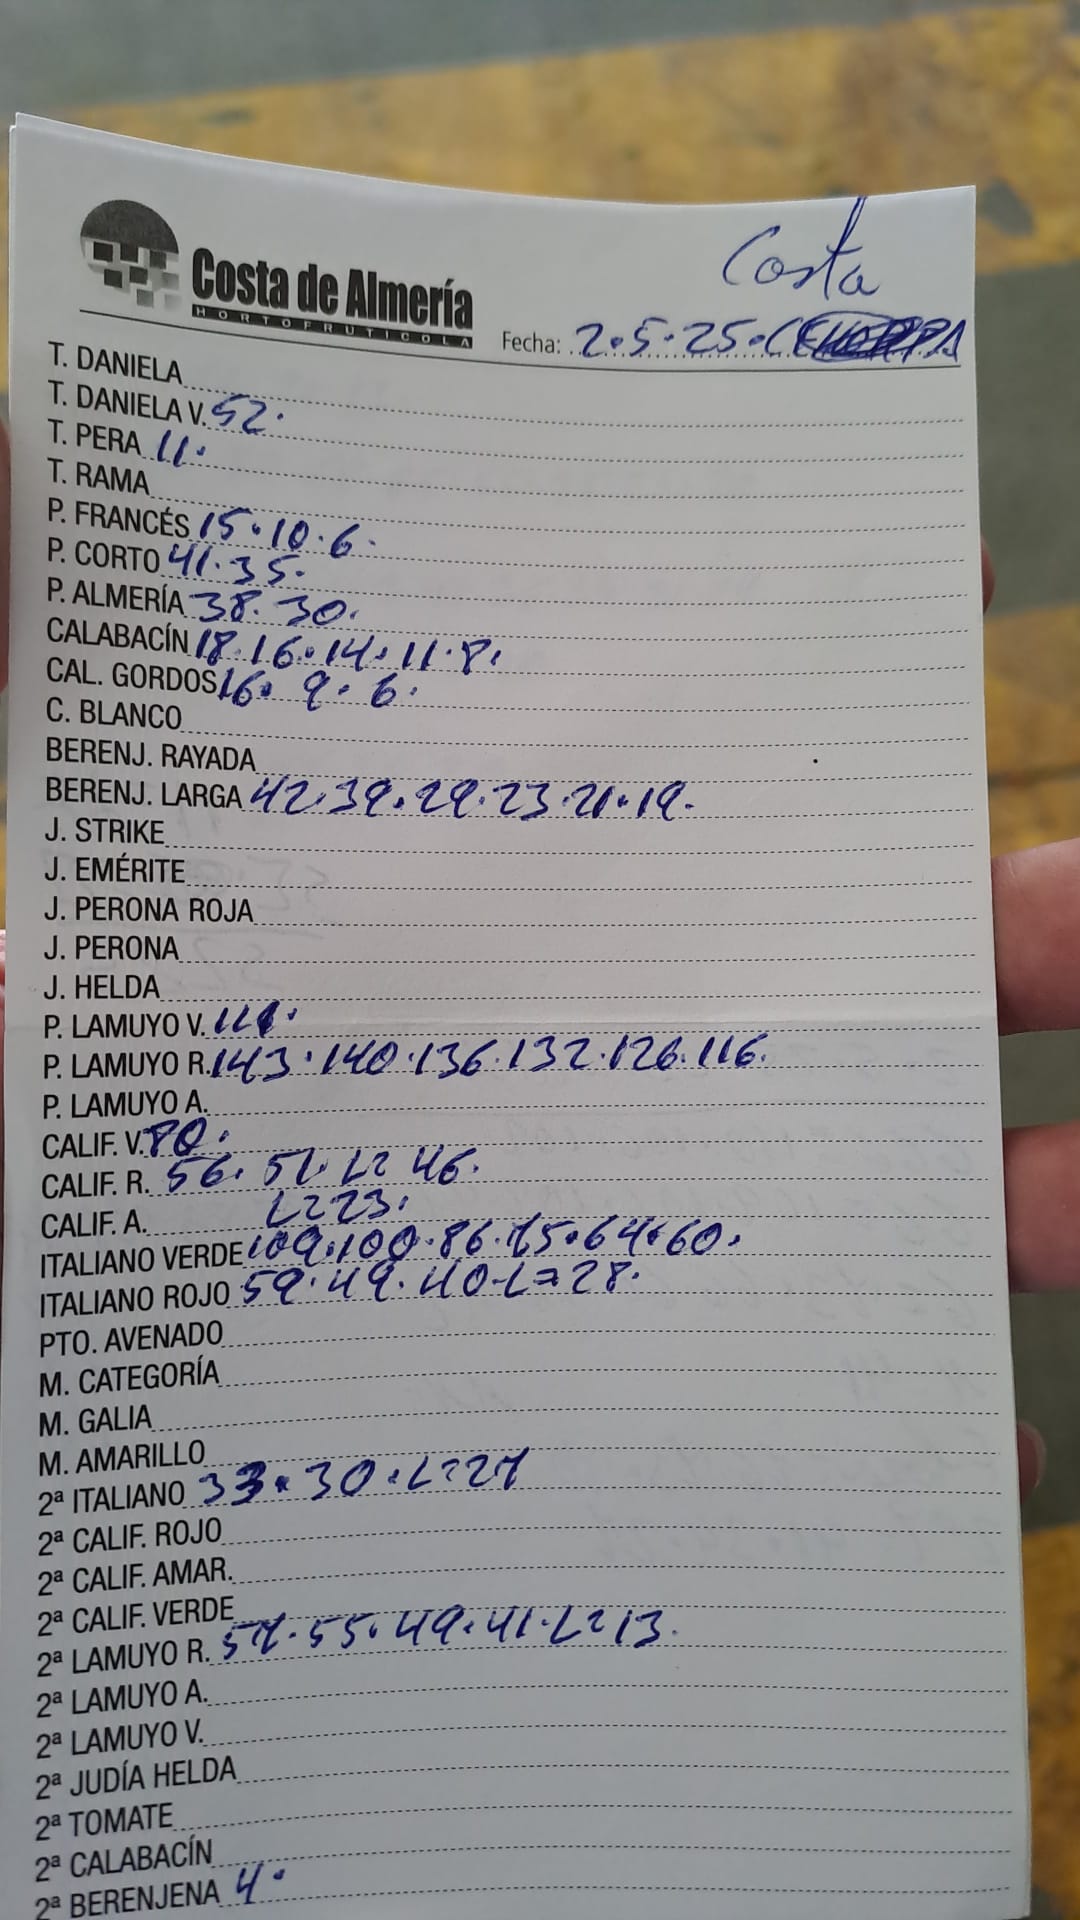 Costa
Costa de Almería
HORTOFRUTICOLA
Fecha: 2.5.25.
T. DANIELA
T. DANIELA V. 52.
T. PERA 11.
T. RAMA
P. FRANCÉS 15.10.6.
P. CORTO 41.35.
P. ALMERÍA 38.30.
CALABACÍN 18.16.14.11.8.
CAL. GORDOS 16.9.6.
C. BLANCO
BERENJ. RAYADA
BERENJ. LARGA 42.39.29.23.21.19.
J. STRIKE
J. EMÉRITE
J. PERONA ROJA
J. PERONA
J. HELDA
P. LAMUYO V.
P. LAMUYO R. 143.140.136.132.126.116.
P. LAMUYO A.
CALIF. V. 80.
CALIF. R. 56. 51. L= 46.
CALIF. A. L=23.
ITALIANO VERDE 109.100.86.75.64.60.
ITALIANO ROJO 59.49.40-L=28.
PTO. AVENADO
M. CATEGORÍA
M. GALIA
M. AMARILLO
2ª ITALIANO 33.30.L=27
2ª CALIF. ROJO
2ª CALIF. AMAR.
2ª CALIF. VERDE
2ª LAMUYO R. 57.55.49.41.L=13.
2ª LAMUYO A.
2ª LAMUYO V.
2ª JUDÍA HELDA
2ª TOMATE
2ª CALABACÍN
2ª BERENJENA 4.